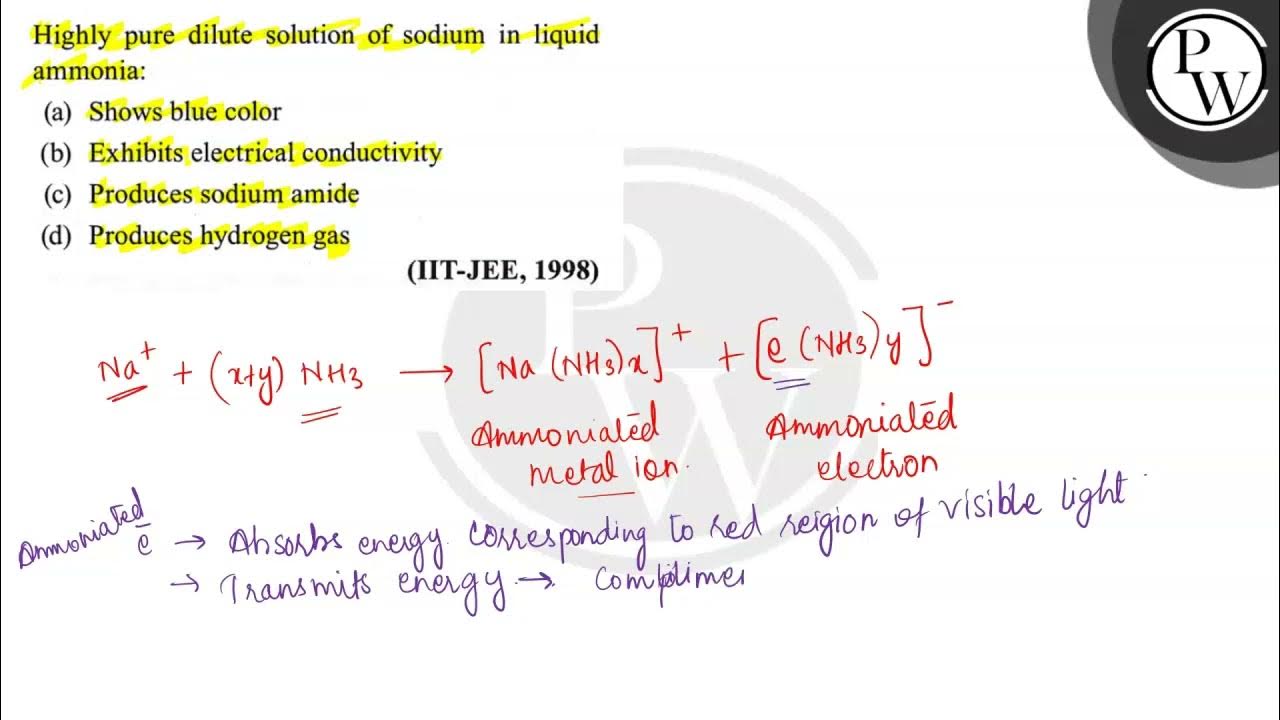 Highly pure dilute solution of sodium in liquid
ammonia:
(a) Shows blue color
(b) Exhibits electrical conductivity
(c) Produces sodium amide
(d) Produces hydrogen gas
(IIT-JEE, 1998)
PW
Na⁺ + (x+y) NH₃ → [Na (NH₃)x]⁺ + [e (NH₃)y]⁻
Ammoniated metal ion.
Ammoniated electron
Ammoniated e⁻ → Absorbs energy corresponding to red reigion of visible light.
→ Transmits energy → Complimen